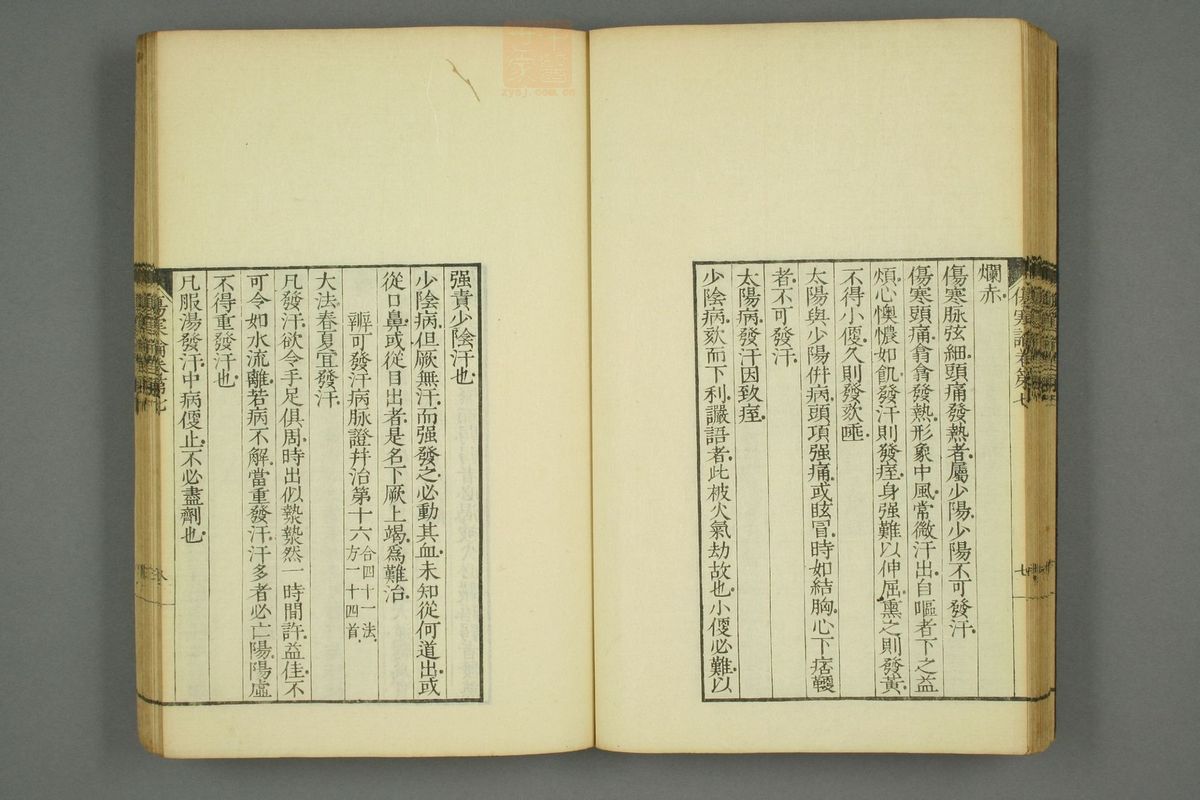 爛赤
傷寒脉弦細頭痛發熱者屬少陽少陽不可發汗
傷寒頭痛翕翕發熱形象中風常微汗出自嘔者下之益
煩心懊憹如飢發汗則發痓身强難以伸屈熏之則發黃
不得小便久則發欬唾
太陽與少陽併病頭項强痛或眩冒時如結胸心下痞鞕
者不可發汗
太陽病發汗因致痓
少陰病欬而下利讝語者此被火氣劫故也小便必難以
强責少陰汗也
少陰病但厥無汗而强發之必動其血未知從何道出或
從口鼻或從目出者是名下厥上竭爲難治
辨可發汗病脉證幷治第十六合四十一法
方一十四首
大法春夏宜發汗
凡發汗欲令手足俱周時出似漐漐然一時間許益佳不
可令如水流離若病不解當重發汗汗多者必亡陽陽虛
不得重發汗也
凡服湯發汗中病便止不必盡劑也
傷寒論卷第七
zysj.com.cn